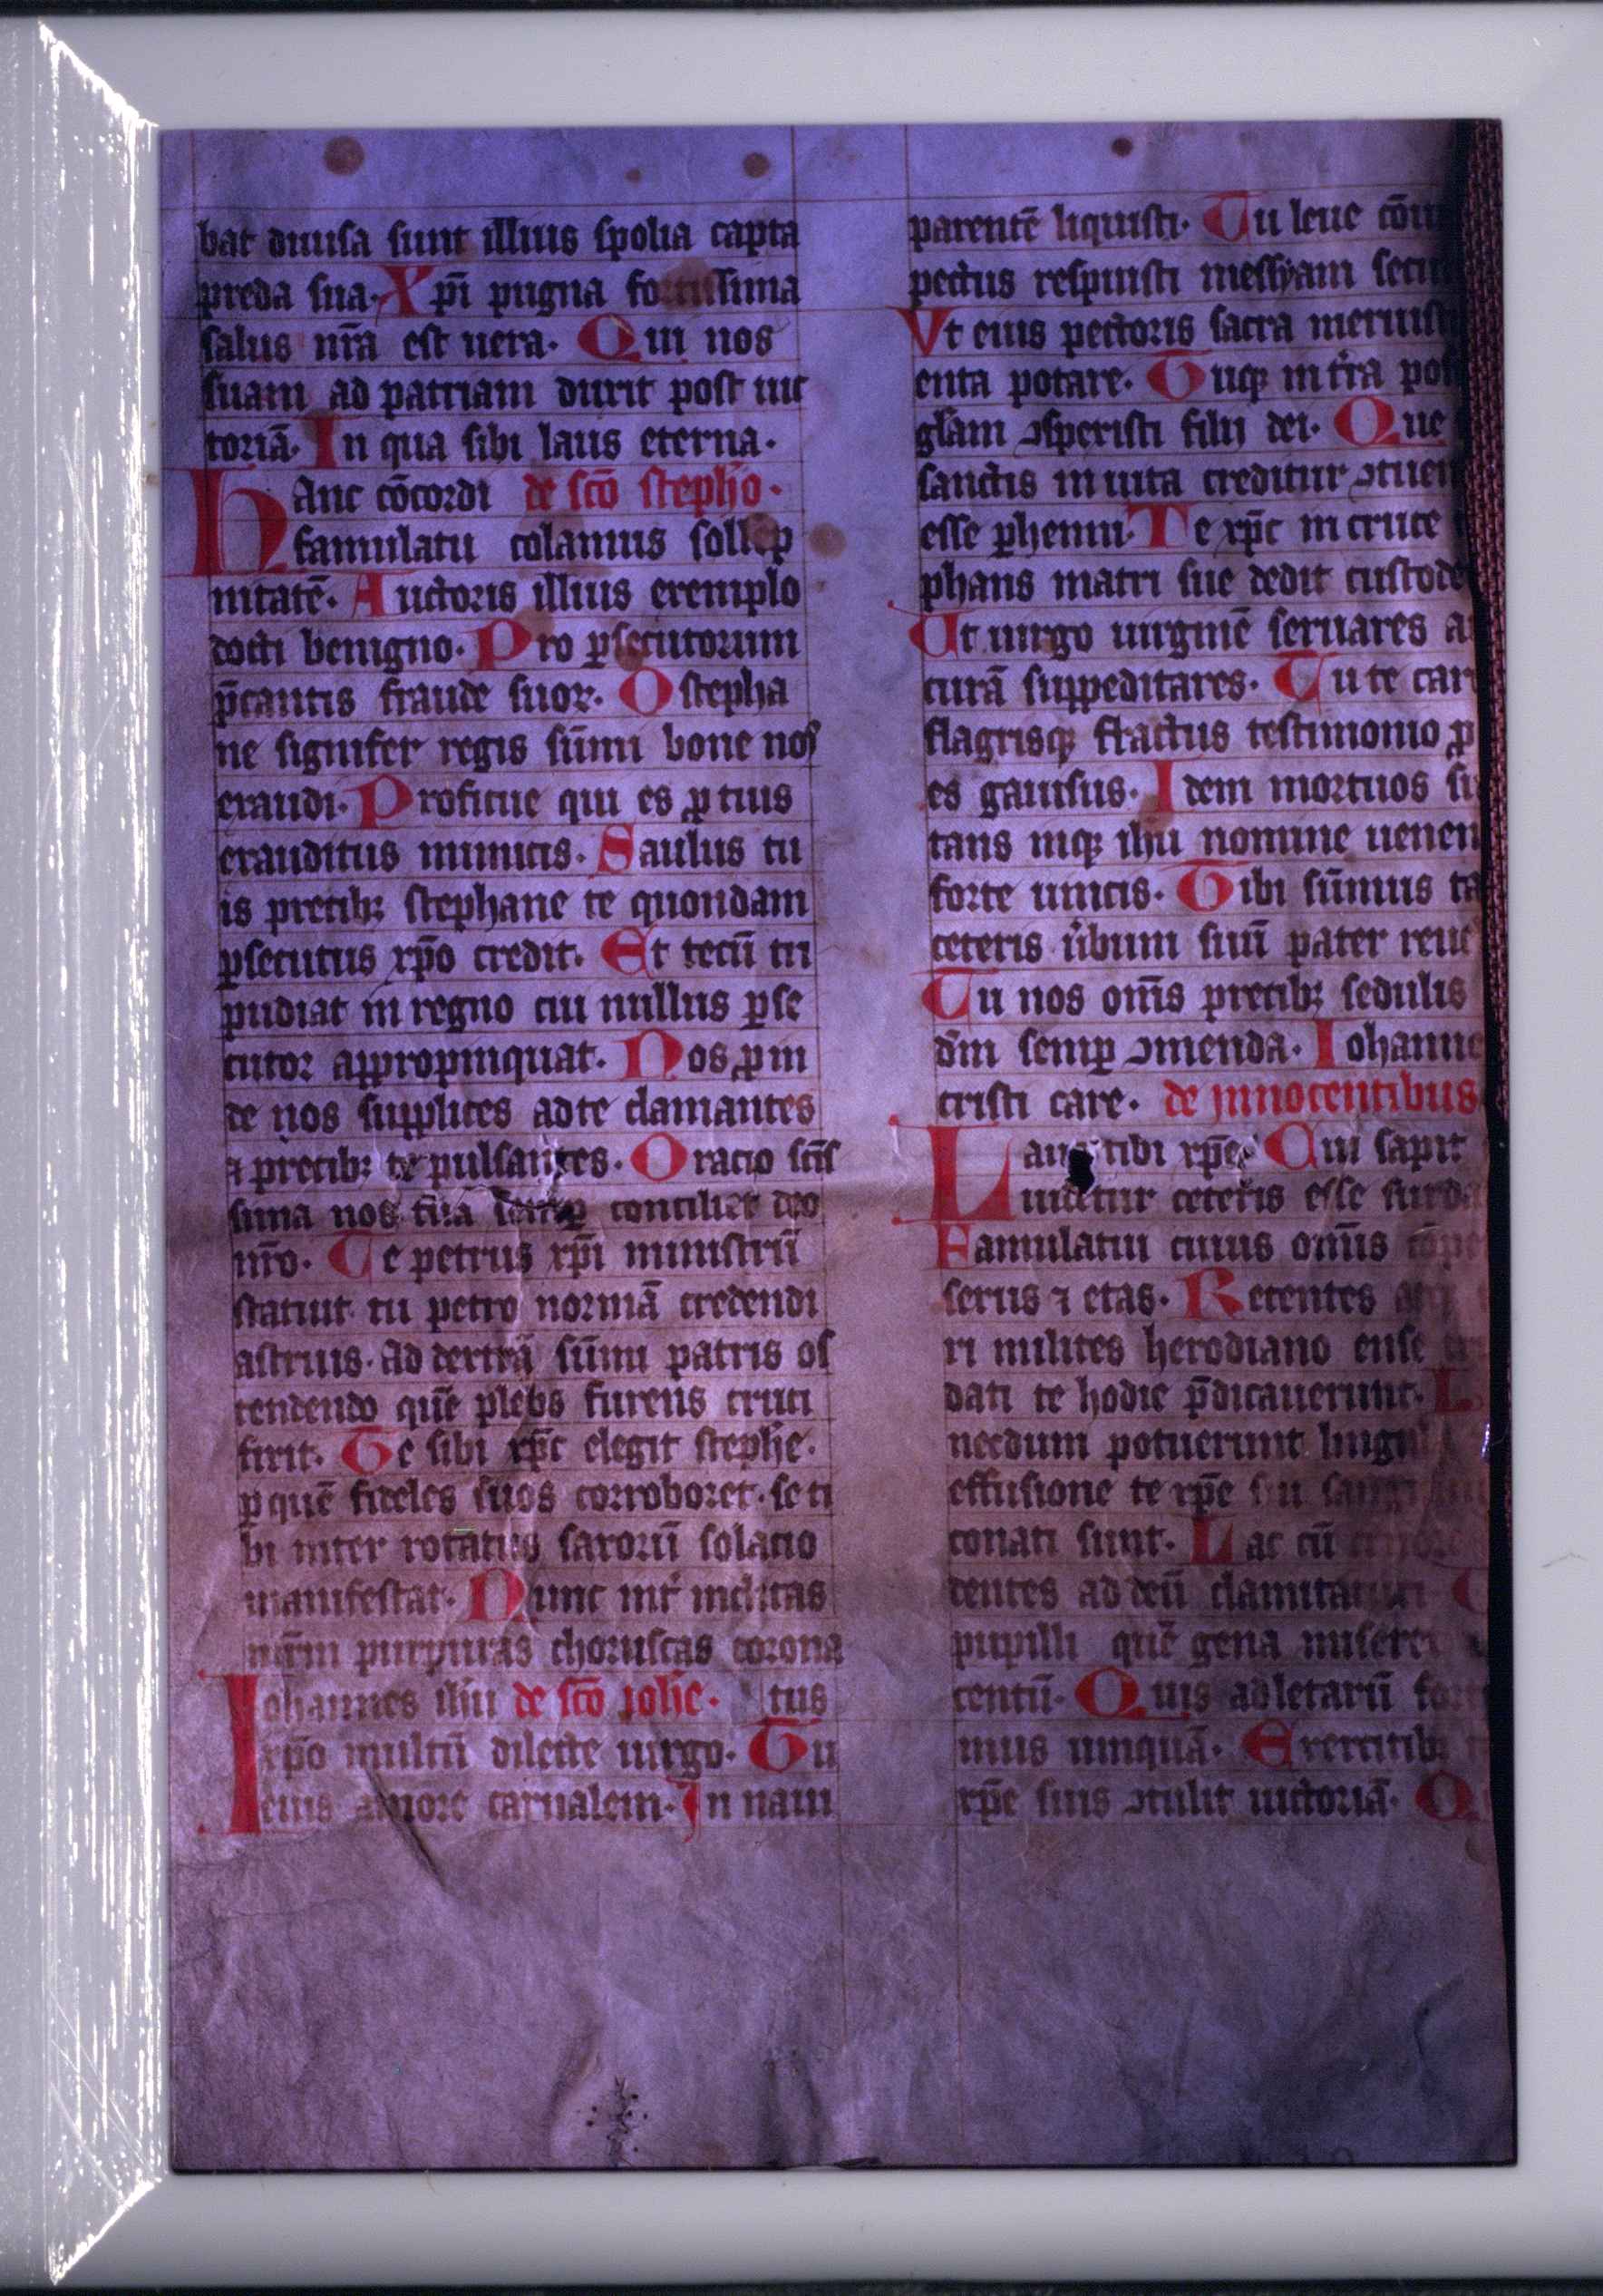 bat diuisa sunt illius spolia capta
preda sua. Xp̄i pugna fortissima
salus nr̄a est uera. Qui nos
suam ad patriam duxit post uic
toriā. In qua sibi laus eterna.
Hanc cōcordi de sc̄o stepho.
famulatu colamus sollēp
nitatē. Auctoris illius exemplo
docti benigno. Pro ꝑsecutorum
p̄cantis fraude suoꝝ. O stepha
ne signifer regis sūmi bone nos
exaudi. Proficue qui es ꝓ tuis
exauditus inimicis. Saulus tu
is precibꝫ stephane te quondam
ꝑsecutus xp̄o credit. Et tecū tri
pudiat in regno cui nullus ꝑse
cutor appropinquat. Nos ꝓin
de nos supplices ad te clamantes
⁊ precibꝫ te pulsantes. Oracio sc̄is
sima nos tua semꝑ conciliet deo
nr̄o. Te petrus xp̄i ministrū
statuit tu petro normā credendi
astruis. ad dextrā sūmi patris os
tendendo quē plebs furens cruci
fixit. Te sibi xp̄c elegit stephē.
ꝑ quē fideles suos corroboret. se ti
bi inter rotatus saxorū solacio
manifestat. Nunc int̉ inclitas
mr̄m purpuras choruscas corona
Iohannes ih̄u de sc̄o ioh̄e. tus
xp̄o multū dilecte uirgo. Tu
eius amore carnalem. In naui
parentē liquisti. Tu leue cōiu
pectus respuisti messyam secu
Vt eius pectoris sacra meruisti
enta potare. Tuqꝫ in tr̄a pos
gl̄am ꝯspexisti filij dei. Que
sanctis in uita creditur ꝯtuen
esse ꝑhenni. Te xp̄c in cruce
phans matri sue dedit custode
Ut uirgo uirginē seruares a
curā suppeditares. Tu te car
flagrisqꝫ fractus testimonio ꝓ
es gauisus. Idem mortuos su
tans inqꝫ ih̄u nomine uenen
forte uincis. Tibi sūmus ta
ceteris u̓bum suū pater reue
Tu nos om̄s precibꝫ sedulis
dm̄ semꝑ ꝯmenda. Iohanne
cristi care. de innocentibus
Laus tibi xp̄e Cui sapit
uidetur ceteris esse surda
Famulatui cuius om̄is cōpe
sexus ⁊ etas. Recentes
ri milites herodiano ense
dati te hodie p̄dicauerunt. L
necdum potuerunt lingu
effusione te xp̄e su
conati sunt. Lac cū
centes ad deū clamita
pupilli quē gena misere
centū. Quis adletarū for
mus unquā. Exercitibꝫ
xp̄e suis ꝯtulit uictoriā. Q